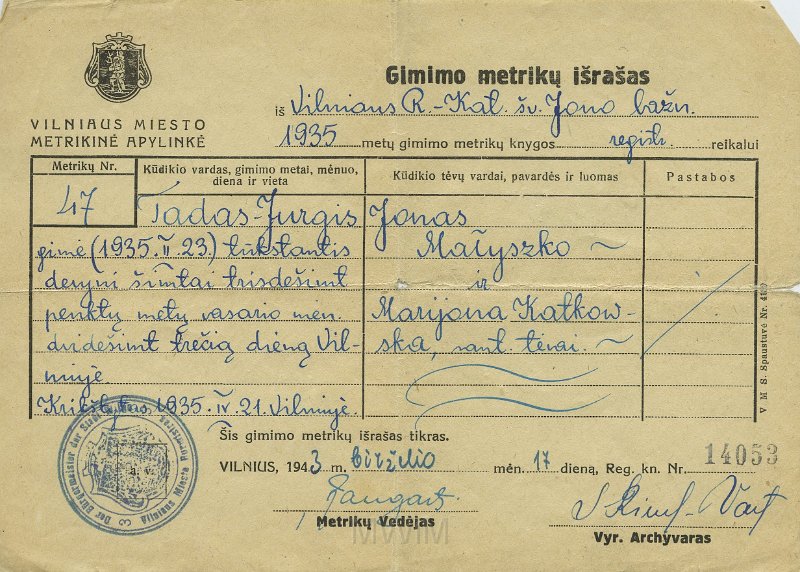 Gimimo metrikų išrašas
iš Vilniaus R.-Kat. šv. Jono bažn.
VILNIAUS MIESTO
METRIKINĖ APYLINKĖ
1935 metų gimimo metrikų knygos registr. reikalui
Metrikų Nr.
47
Kūdikio vardas, gimimo metai, mėnuo,
diena ir vieta
Tadas-Jurgis
gimė (1935.II.23) tūkstantis
devyni šimtai trisdešimt
penktų metų vasario mėn.
dvidešimt trečią dieną Vil-
niuje
Krikštytas 1935.IV.21. Vilniuje.
Kūdikio tėvų vardai, pavardės ir luomas
Jonas
Małyszko
ir
Marijona Katkow-
ska, sant. tėvai.
Pastabos
V M S. Spaustuvė Nr.
Šis gimimo metrikų išrašas tikras.
VILNIUS, 1943 m. birželio mėn. 17 dieną, Reg. kn. Nr. 14053
Metrikų Vedėjas
Vyr. Archyvaras
Der Bürgermeister der Stadt
Vilniaus Miesto
3
MWIM